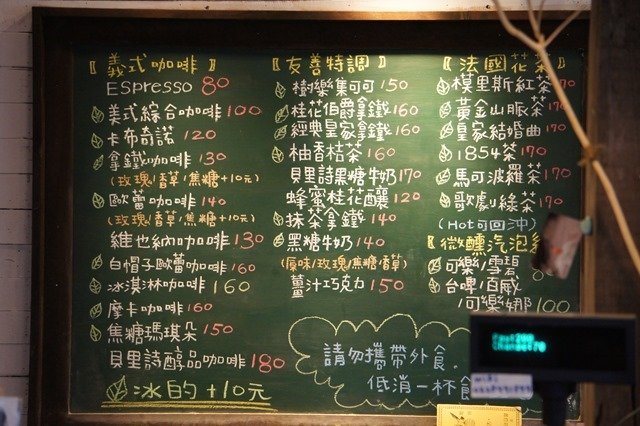 〖義式咖啡〗
Espresso 80
美式綜合咖啡 100
卡布奇諾 120
拿鐵咖啡 130
(玫瑰/香草/焦糖+10元)
歐蕾咖啡 140
(玫瑰/香草/焦糖+10元)
維也納咖啡 130
白帽子歐蕾咖啡 160
冰淇淋咖啡 160
摩卡咖啡 160
焦糖瑪琪朵 150
貝里詩醇品咖啡 180
冰的+10元
〖友善特調〗
樹樂集可可 150
桂花伯爵拿鐵 160
經典皇家拿鐵 160
柚香桔茶 160
貝里詩黑糖牛奶 170
蜂蜜桂花釀 120
抹茶拿鐵 140
黑糖牛奶 140
(原味/玫瑰/焦糖/香草)
薑汁巧克力 150
請勿攜帶外食.
低消一杯
〖法國花茶
模里斯紅茶 170
黃金山脈茶 170
皇家結婚曲 170
1854茶 170
馬可波羅茶 170
歌劇綠茶 170
(Hot可回沖)
〖微醺汽泡
可樂/雪碧
台啤/百威
/可樂娜 100